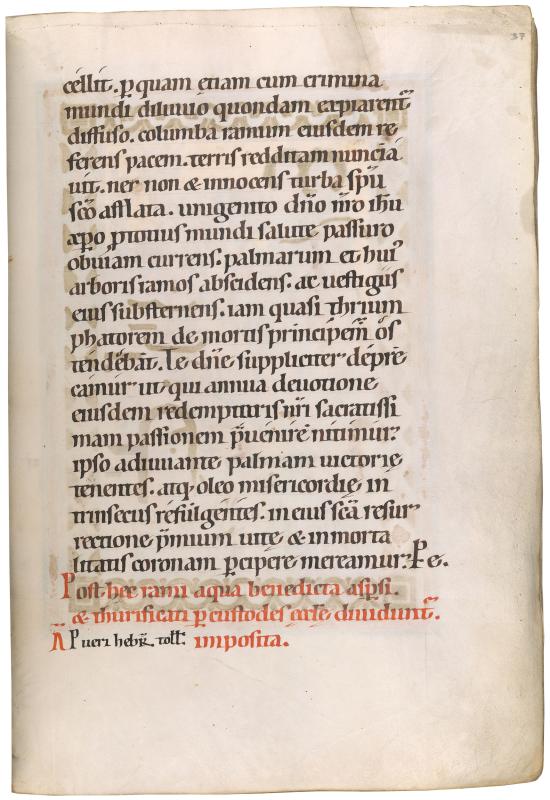 37
cellit. p quam etiam cum crimina
mundi diluuio quondam expiarent̃
diffuso. columba ramum eiusdem re
ferens pacem. terris redditam nuncia
uit. nec non & innocens turba sp̄u
sc̄o afflata. unigenito dn̄o nr̄o ihū
xp̄o p totius mundi salute passuro
obuiam currens. palmarum et hui᾿
arboris ramos abscidens. ac uestigiis
eius substernens. iam quasi thrium
phatorem de mortis principem̄ os
tendebāt. Te dn̄e suppliciter dep̄re
camur ut qui annua deuotione
eiusdem redemptoris nr̄i sacratissi
mam passionem p̄uenire nitimur.
ipso adiuuante palmam uictorie
tenentes. atq; oleo misericordie in
trinsecus refulgentes. in eius sc̄a resur
rectione p̄mium uite & inmorta
litatis coronam p̱cipere mereamur. P̱ e.
Post hec rami aqua benedicta asp̱si.
& thurificati p̱ custodes eccl̄e diuidunt̃.
A Pueri hebr̄. toll̄. imposita.